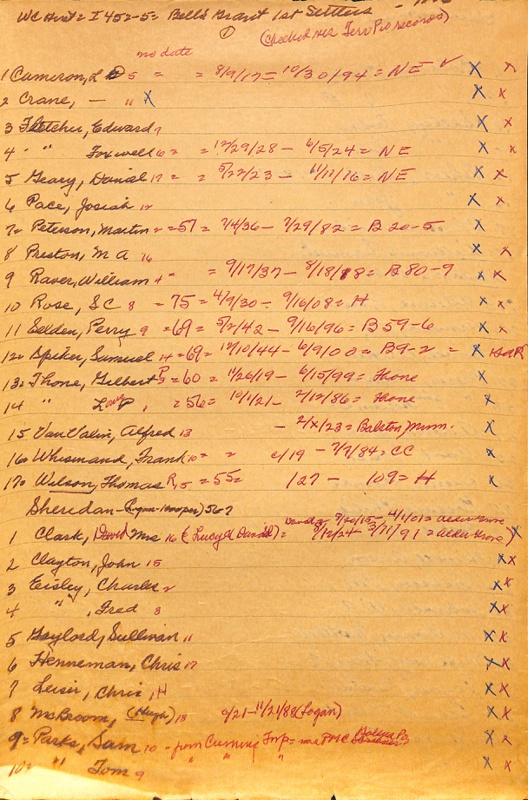 WC Hist = I 452-5 = Bell's Brand 1st Settlers
no date
1 Cameron, L D 5 = = 8/9/17 = 10/30/94 = NE ✓ X X
2 Crane, — " X X X
3 Fletcher, Edward 7 X X
4 " " Foxwell 6 = = 12/29/28 — 6/5/24 = NE X X
5 Geary, Daniel 17 = = 5/22/23 — 11/11/76 = NE X X
6 Pace, Josiah 12 X X
7 = Peterson, Martin 2 = 57 = 7/4/36 — 7/29/82 = B 20-5 X X
8 Preston, M A 16 X X
9 Raver, William 4 = 9/17/37 — 8/18/88 = B 80-9 X X
10 Rose, S C 8 = 75 = 4/9/30 — 9/16/08 = H X X
11 Selden, Perry 9 = 69 = 5/2/42 — 9/16/96 = B 59-6 X X
12 = Spiker, Samuel 14 = 69 = 12/10/44 — 6/9/00 = B9-2 = X
13 = Thone, Gilbert = 60 = 11/26/19 — 6/15/99 = Thone X X
14 " = 56 = 10/1/21 — 2/12/86 = Thone X X
15 Van Valin, Alfred 13 — 2/x/23 = Minn. X X
16 = Whisinand, Frank 10 = = c/19 — 7/7/84 = CC X X
17 = Wilson, Thomas R, 5 = 55 = 127 — 109 = H X X
Sheridan 567
1 Clark, David Mrs 16 (Lucy & David) = 3/11/91 = Alder Grove X
2 Clayton, John 15 X X
3 Eisley, Charles 2 X X
4 " , Fred 3 X X
5 Gaylord, Sullivan 11 X X
6 Henneman, Chris 17 X X
7 Leisir, Chris, H X X
8 McBroom, (Hugh) 13 9/21 — 11/21/88 (Logan) X X
9 = Parks, Sam 10 - from Cuming Twp = X X
10 = " Tom 9 " " " X X